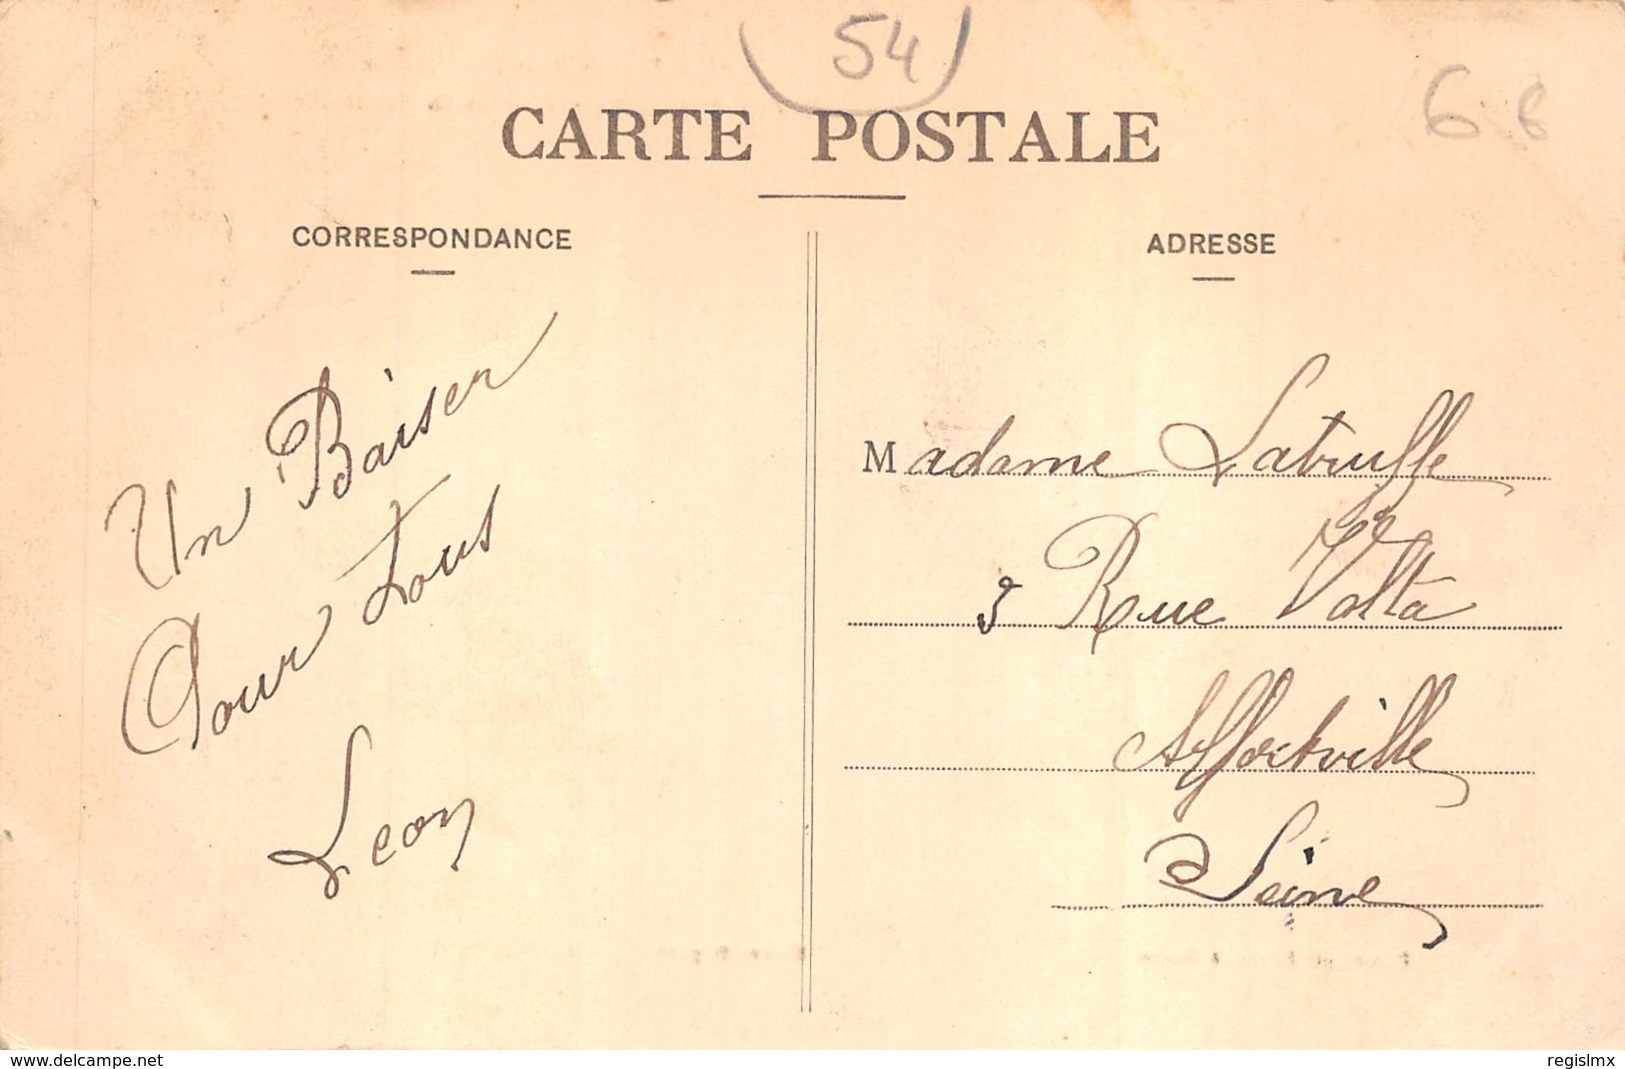 54
6 6
CARTE POSTALE
CORRESPONDANCE
Un Baiser
Pour tous
Leon
ADRESSE
Madame Latruffe
3 Rue Volta
Alfortville
Seine
www.delcampe.net
regislmx